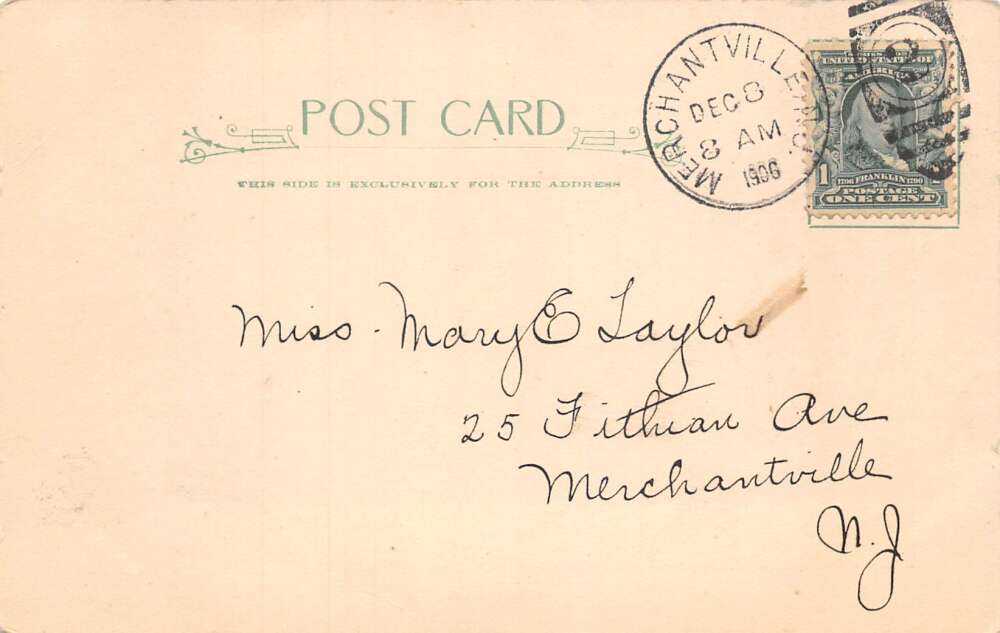 POST CARD
THIS SIDE IS EXCLUSIVELY FOR THE ADDRESS
MERCHANTVILLE, N.J.
DEC 8
8 AM
1906
2
UNITED STATES OF
AMERICA
1
1706 FRANKLIN 1790
POSTAGE
ONE CENT
Miss. Mary E Taylor
25 Fithian Ave
Merchantville
N.J